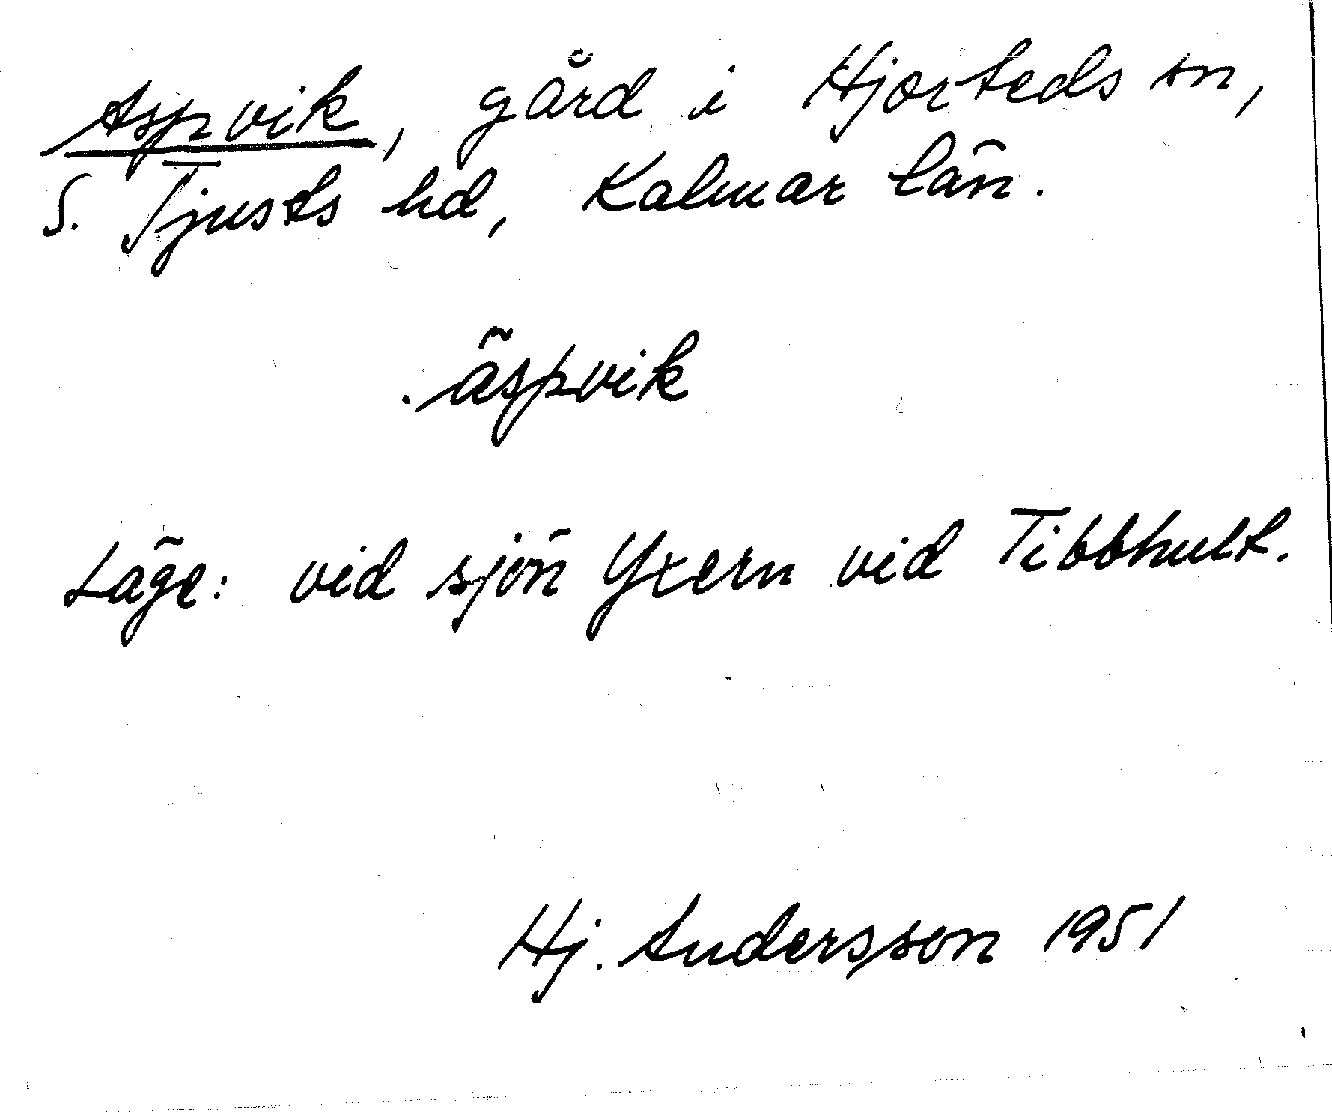 Aspvik, gård i Hjorteds sn,
S. Tjusts hd, Kalmar län.
äspvik
Läge: vid sjön Yxern vid Tibbhult.
Hj. Andersson 1951